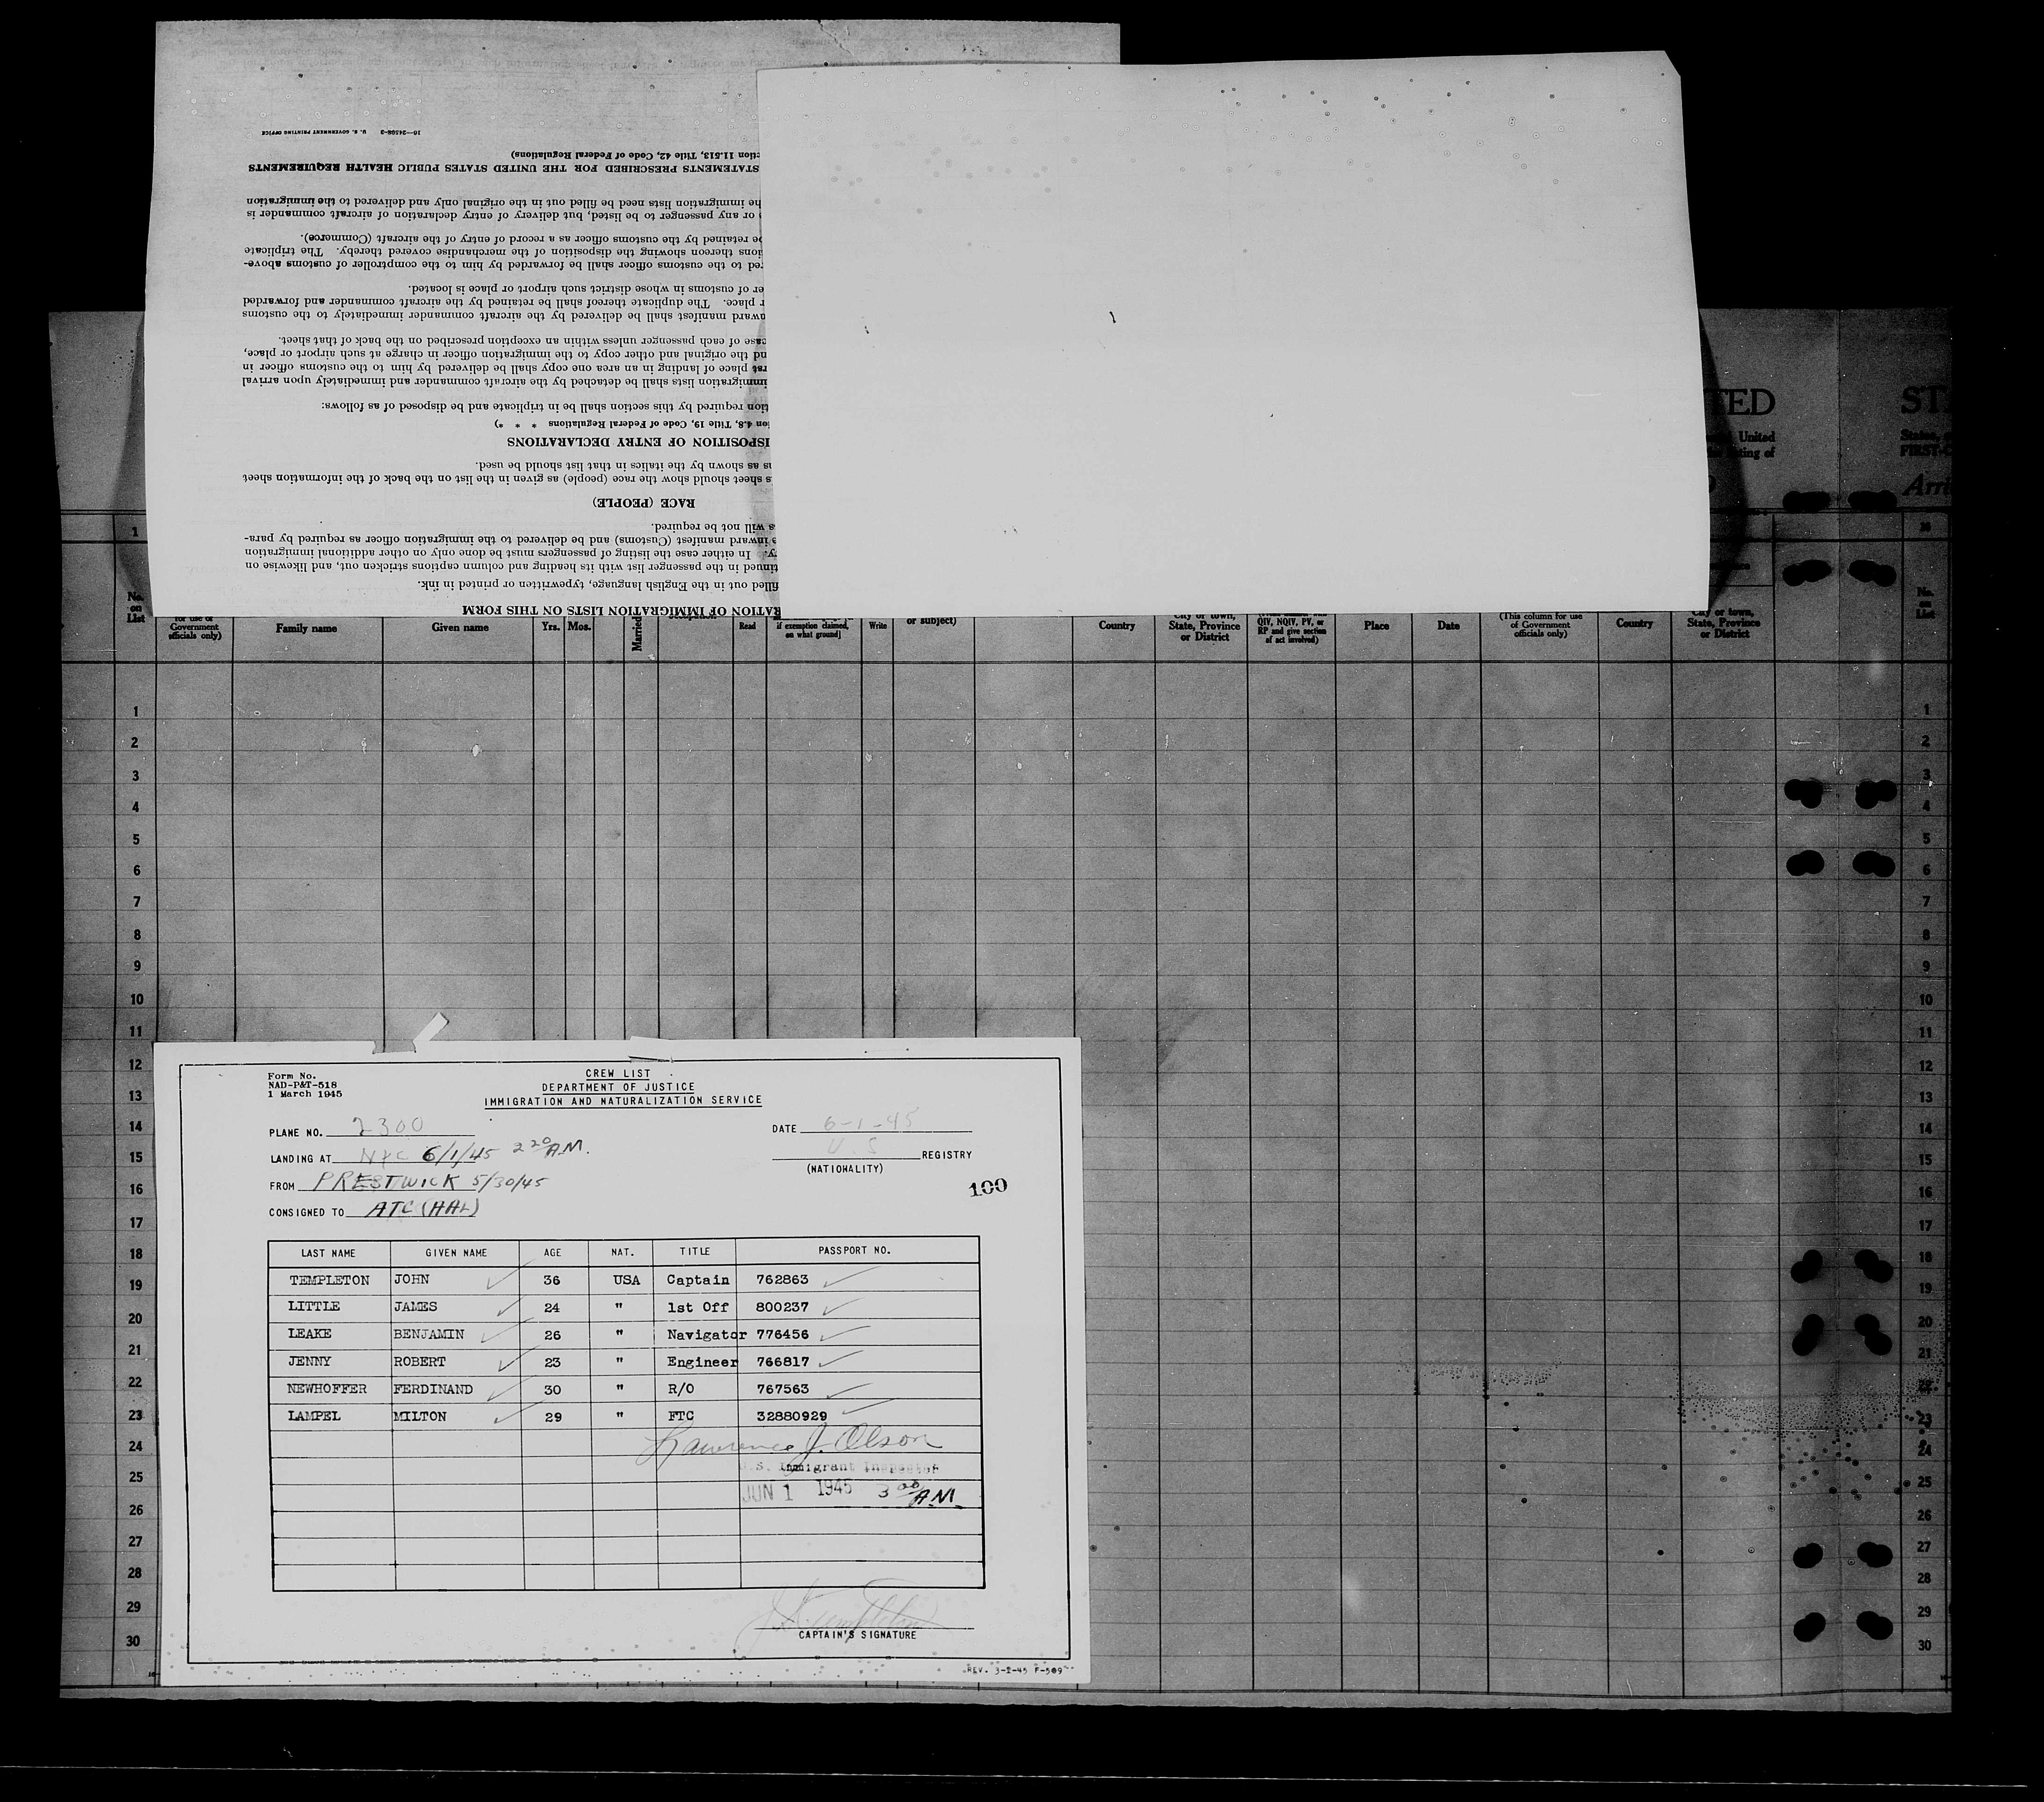 16—24598-3 U. S. GOVERNMENT PRINTING OFFICE
ction 11.513, Title 42, Code of Federal Regulations)
STATEMENTS PRESCRIBED FOR THE UNITED STATES PUBLIC HEALTH REQUIREMENTS
he immigration lists need be filled out in the original only and delivered to the immigration
or any passenger to be listed, but delivery of entry declaration of aircraft commander is
be retained by the customs officer as a record of entry of the aircraft (Commerce).
tions thereon showing the disposition of the merchandise covered thereby. The triplicate
red to the customs officer shall be forwarded by him to the comptroller of customs above-
er of customs in whose district such airport or place is located.
r place. The duplicate thereof shall be retained by the aircraft commander and forwarded
ward manifest shall be delivered by the aircraft commander immediately to the customs
case of each passenger unless within an exception prescribed on the back of that sheet.
nd the original and other copy to the immigration officer in charge at such airport or place,
rst place of landing in an area one copy shall be delivered by him to the customs officer in
immigration lists shall be detached by the aircraft commander and immediately upon arrival
tion required by this section shall be in triplicate and be disposed of as follows:
ion 4.8, Title 19, Code of Federal Regulations * * *)
ISPOSITION OF ENTRY DECLARATIONS
ns as shown by the italics in that list should be used.
s sheet should show the race (people) as given in the list on the back of the information sheet
RACE (PEOPLE)
s will not be required.
e inward manifest (Customs) and be delivered to the immigration officer as required by para-
y. In either case the listing of passengers must be done only on other additional immigration
tinued in the passenger list with its heading and column captions stricken out, and likewise on
filled out in the English language, typewritten or printed in ink.
RATION OF IMMIGRATION LISTS ON THIS FORM
TED ST
United States,
ting of FIRST-C
Arri
1
No. on List
for use of Government officials only)
Family name Given name Yrs. Mos. Married Read if exemption claimed, on what ground] Write or subject) Country City or town, State, Province or District QIV, NQIV, PV, or RP and give section of act involved) Place Date (This column for use of Government officials only) Country City or town, State, Province or District No. on List
1 1
2 2
3 3
4 4
5 5
6 6
7 7
8 8
9 9
10 10
11 11
12 12
13 13
14 14
15 15
16 16
17 17
18 18
19 19
20 20
21 21
22 22
23 23
24 24
25 25
26 26
27 27
28 28
29 29
30 30
Form No.
NAD-P&T-518
1 March 1945
CREW LIST
DEPARTMENT OF JUSTICE
IMMIGRATION AND NATURALIZATION SERVICE
PLANE NO. 2300 DATE 6-1-45
LANDING AT NYC 6/1/45 2 20 A.M. U.S REGISTRY
(NATIONALITY)
FROM PRESTWICK 5/30/45 100
CONSIGNED TO ATC (AAL)
LAST NAME GIVEN NAME AGE NAT. TITLE PASSPORT NO.
TEMPLETON JOHN 36 USA Captain 762863
LITTLE JAMES 24 " 1st Off 800237
LEAKE BENJAMIN 26 " Navigator 776456
JENNY ROBERT 23 " Engineer 766817
NEWHOFFER FERDINAND 30 " R/O 767563
LAMPEL MILTON 29 " FTC 32880929
Lawrence J. Olson
U.S. Immigrant Inspector
JUN 1 1945 3 00 A.M.
J Templeton
CAPTAIN'S SIGNATURE
REV. 3-2-45 F-509